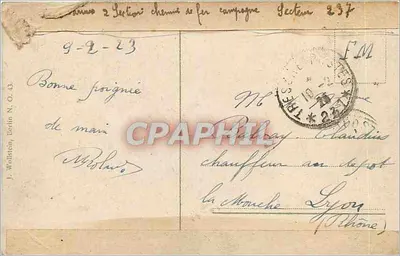 2 Section chemins de fer campagne Secteur 237
9-2-23
FM
Bonne poignée
de main
TRESOR ET POSTES
10-2
23
* 237 *
M
Claudius
chauffeur au depot
la Mouche Lyon
(Rhône)
J. Wollstein, Berlin N. O. 43.
CPAPHIL